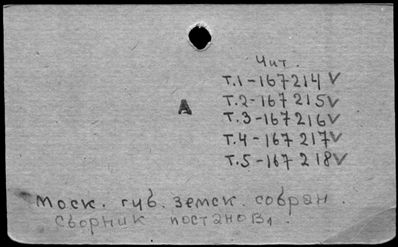 Чит.
т.1-167214 V
А
т.2-167 215 V
т.3-167 216 V
т.4-167 217 V
т.5-167 218 V
Моск. губ. земск. собран.
Сборник постанов.